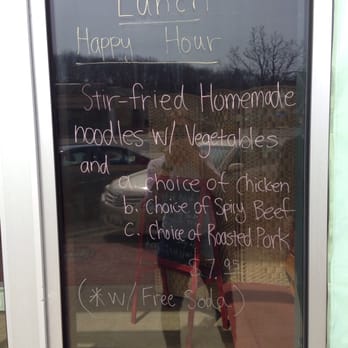 Lunch
Happy Hour
Stir-fried Homemade
noodles w/ Vegetables
and
a. choice of Chicken
b. Choice of Spicy Beef
c. Choice of Roasted Pork
$7.95
(*w/ Free Soda)